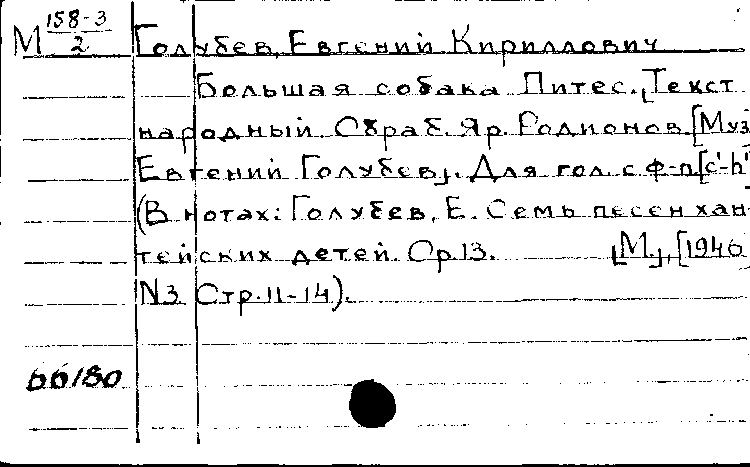 М 158-3/2 Голубев, Евгений Кириллович
Большая собака Питес. [Текст
народный Обраб. Яр. Родионов [Муз
Евгений Голубев]. Для гол. с ф-п. [c'-h'
(В нотах: Голубев, Е. Семь песен хан-
тейских детей. Ор. 13. [М.], [1946
N3 Стр. 11-14).
66180